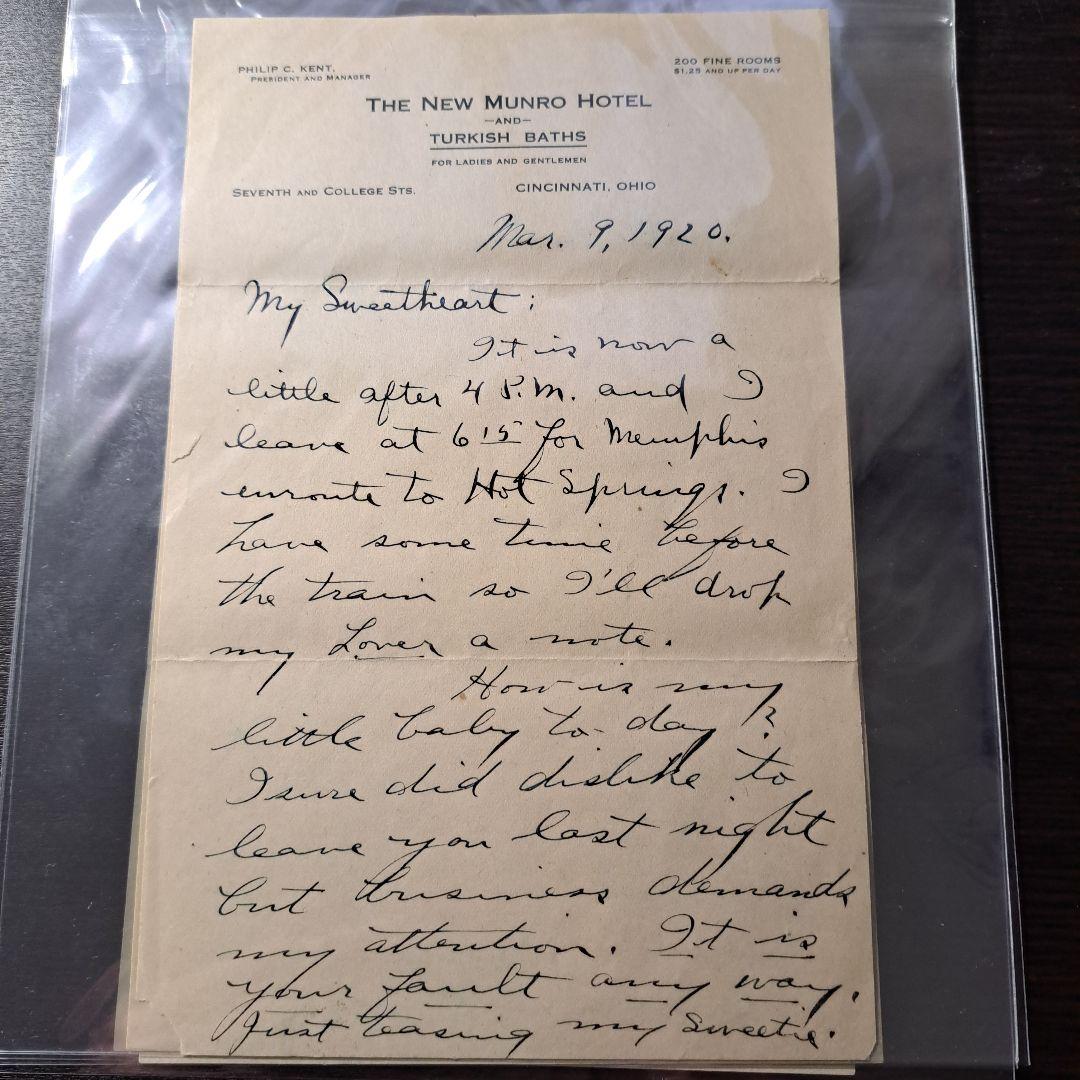 PHILIP C. KENT,
PRESIDENT AND MANAGER
200 FINE ROOMS
$1.25 AND UP PER DAY
THE NEW MUNRO HOTEL
—AND—
TURKISH BATHS
FOR LADIES AND GENTLEMEN
SEVENTH AND COLLEGE STS.
CINCINNATI, OHIO
Mar. 9, 1920.
My Sweetheart:
It is now a
little after 4 P.M. and I
leave at 6 15 for Memphis
enroute to Hot Springs. I
have some time before
the train so I'll drop
my Lover a note.
How is my
little baby to-day?
I sure did dislike to
leave you last night
but business demands
my attention. It is
your fault any way.
Just teasing my sweetie.